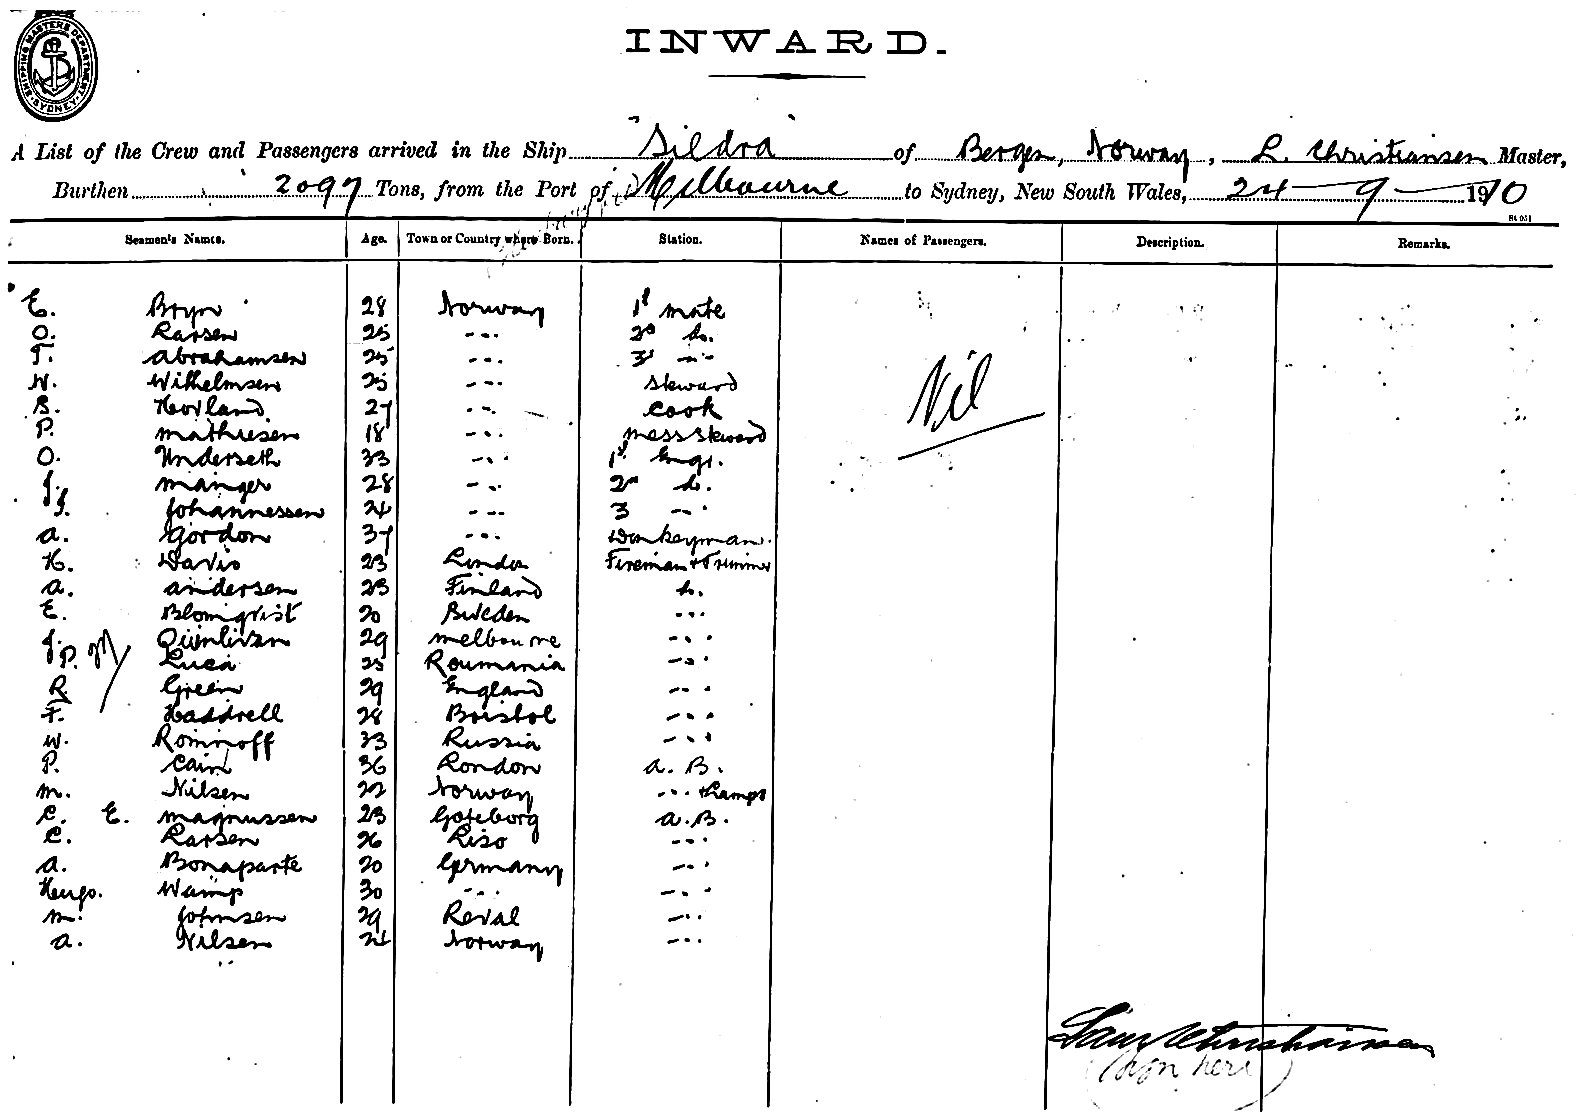 SHIPPING MASTERS DEPARTMENT
SYDNEY
INWARD.
A List of the Crew and Passengers arrived in the Ship "Sildra" of Bergen, Norway, L. Christiansen Master,
Burthen 2097 Tons, from the Port of Melbourne to Sydney, New South Wales, 24-9-1910
St 051
Seamen's Names. Age. Town or Country where Born. Station. Names of Passengers. Description. Remarks.
E. Bryn 28 Norway 1st mate
O. Larsen 25 --- 2nd do.
T. Abrahamsen 25 --- 3d ---
W. Wilhelmsen 25 --- Steward
B. Hovland 27 --- Cook
Nil
P. Mathiesen 18 --- Mess steward
O. Underseth 33 --- 1st Engr.
J. Manger 28 --- 2nd do.
J. Johannessen 24 --- 3 ---
A. Gordon 37 --- Donkeyman.
H. Davis 23 London Fireman & Trimmer
A. Andersen 23 Finland do.
E. Blomqvist 20 Sweden ---
J. Quinlivan 29 Melbourne ---
P. Luca 25 Roumania ---
R. Green 29 England ---
F. Haddrell 28 Bristol ---
W. Rominoff 33 Russia ---
P. Cain 36 London A.B.
M. Nilsen 22 Norway --- & Lamps
C. E. Magnussen 23 Goteborg A.B.
C. Larsen 26 Riso ---
A. Bonaparte 20 Germany ---
Hugo. Wamp 30 --- ---
M. Johnsen 29 Reval ---
A. Nilsen 24 Norway ---
Christiansen
(Sign here)